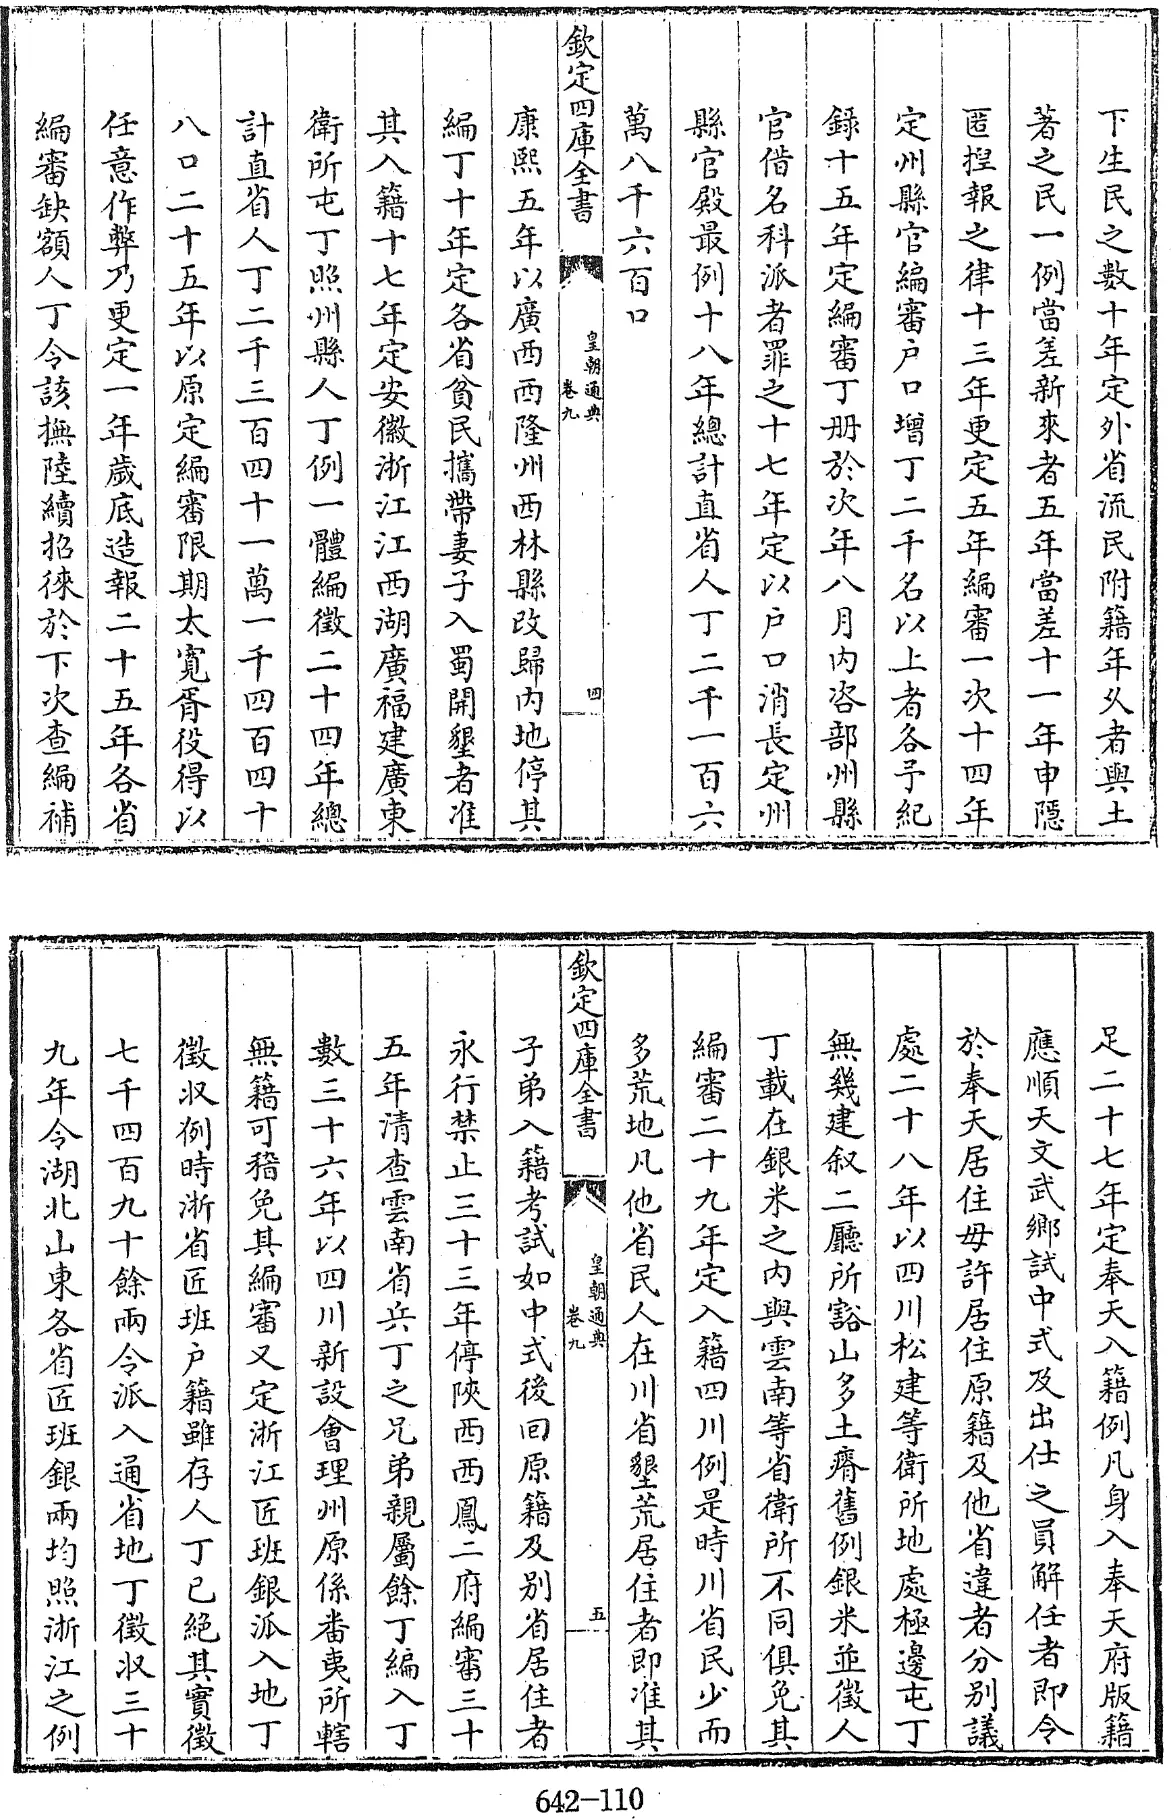 下生民之數十年定外省流民附籍年久者與土
著之民一例當差新來者五年當差十一年申隱
匿捏報之律十三年更定五年編審一次十四年
定州縣官編審户口增丁二千名以上者各予紀
錄十五年定編審丁册於次年八月内咨部州縣
官借名科派者罪之十七年定以户口消長定州
縣官殿最例十八年總計直省人丁二千一百六
萬八千六百口
欽定四庫全書
皇朝通典
卷九
四
康熙五年以廣西西隆州西林縣改歸内地停其
編丁十年定各省貧民攜帶妻子入蜀開墾者准
其入籍十七年定安徽浙江江西湖廣福建廣東
衛所屯丁照州縣人丁例一體編徵二十四年總
計直省人丁二千三百四十一萬一千四百四十
八口二十五年以原定編審限期太寬胥役得以
任意作弊乃更定一年歲底造報二十五年各省
編審缺額人丁令該撫陸續招徠於下次查編補
足二十七年定奉天入籍例凡身入奉天府版籍
應順天文武鄉試中式及出仕之員解任者即令
於奉天居住毋許居住原籍及他省違者分别議
處二十八年以四川松建等衛所地處極邊屯丁
無幾建叙二廳所豁山多土瘠舊例銀米並徵人
丁載在銀米之内與雲南等省衛所不同俱免其
編審二十九年定入籍四川例是時川省民少而
多荒地凡他省民人在川省墾荒居住者即准其
欽定四庫全書
皇朝通典
卷九
五
子弟入籍考試如中式後回原籍及别省居住者
永行禁止三十三年停陜西西鳳二府編審三十
五年清查雲南省兵丁之兄弟親屬餘丁編入丁
數三十六年以四川新設會理州原係番夷所轄
無籍可稽免其編審又定浙江匠班銀派入地丁
徵收例時浙省匠班户籍雖存人丁已絶其實徵
七千四百九十餘兩令派入通省地丁徵收三十
九年令湖北山東各省匠班銀兩均照浙江之例
642-110